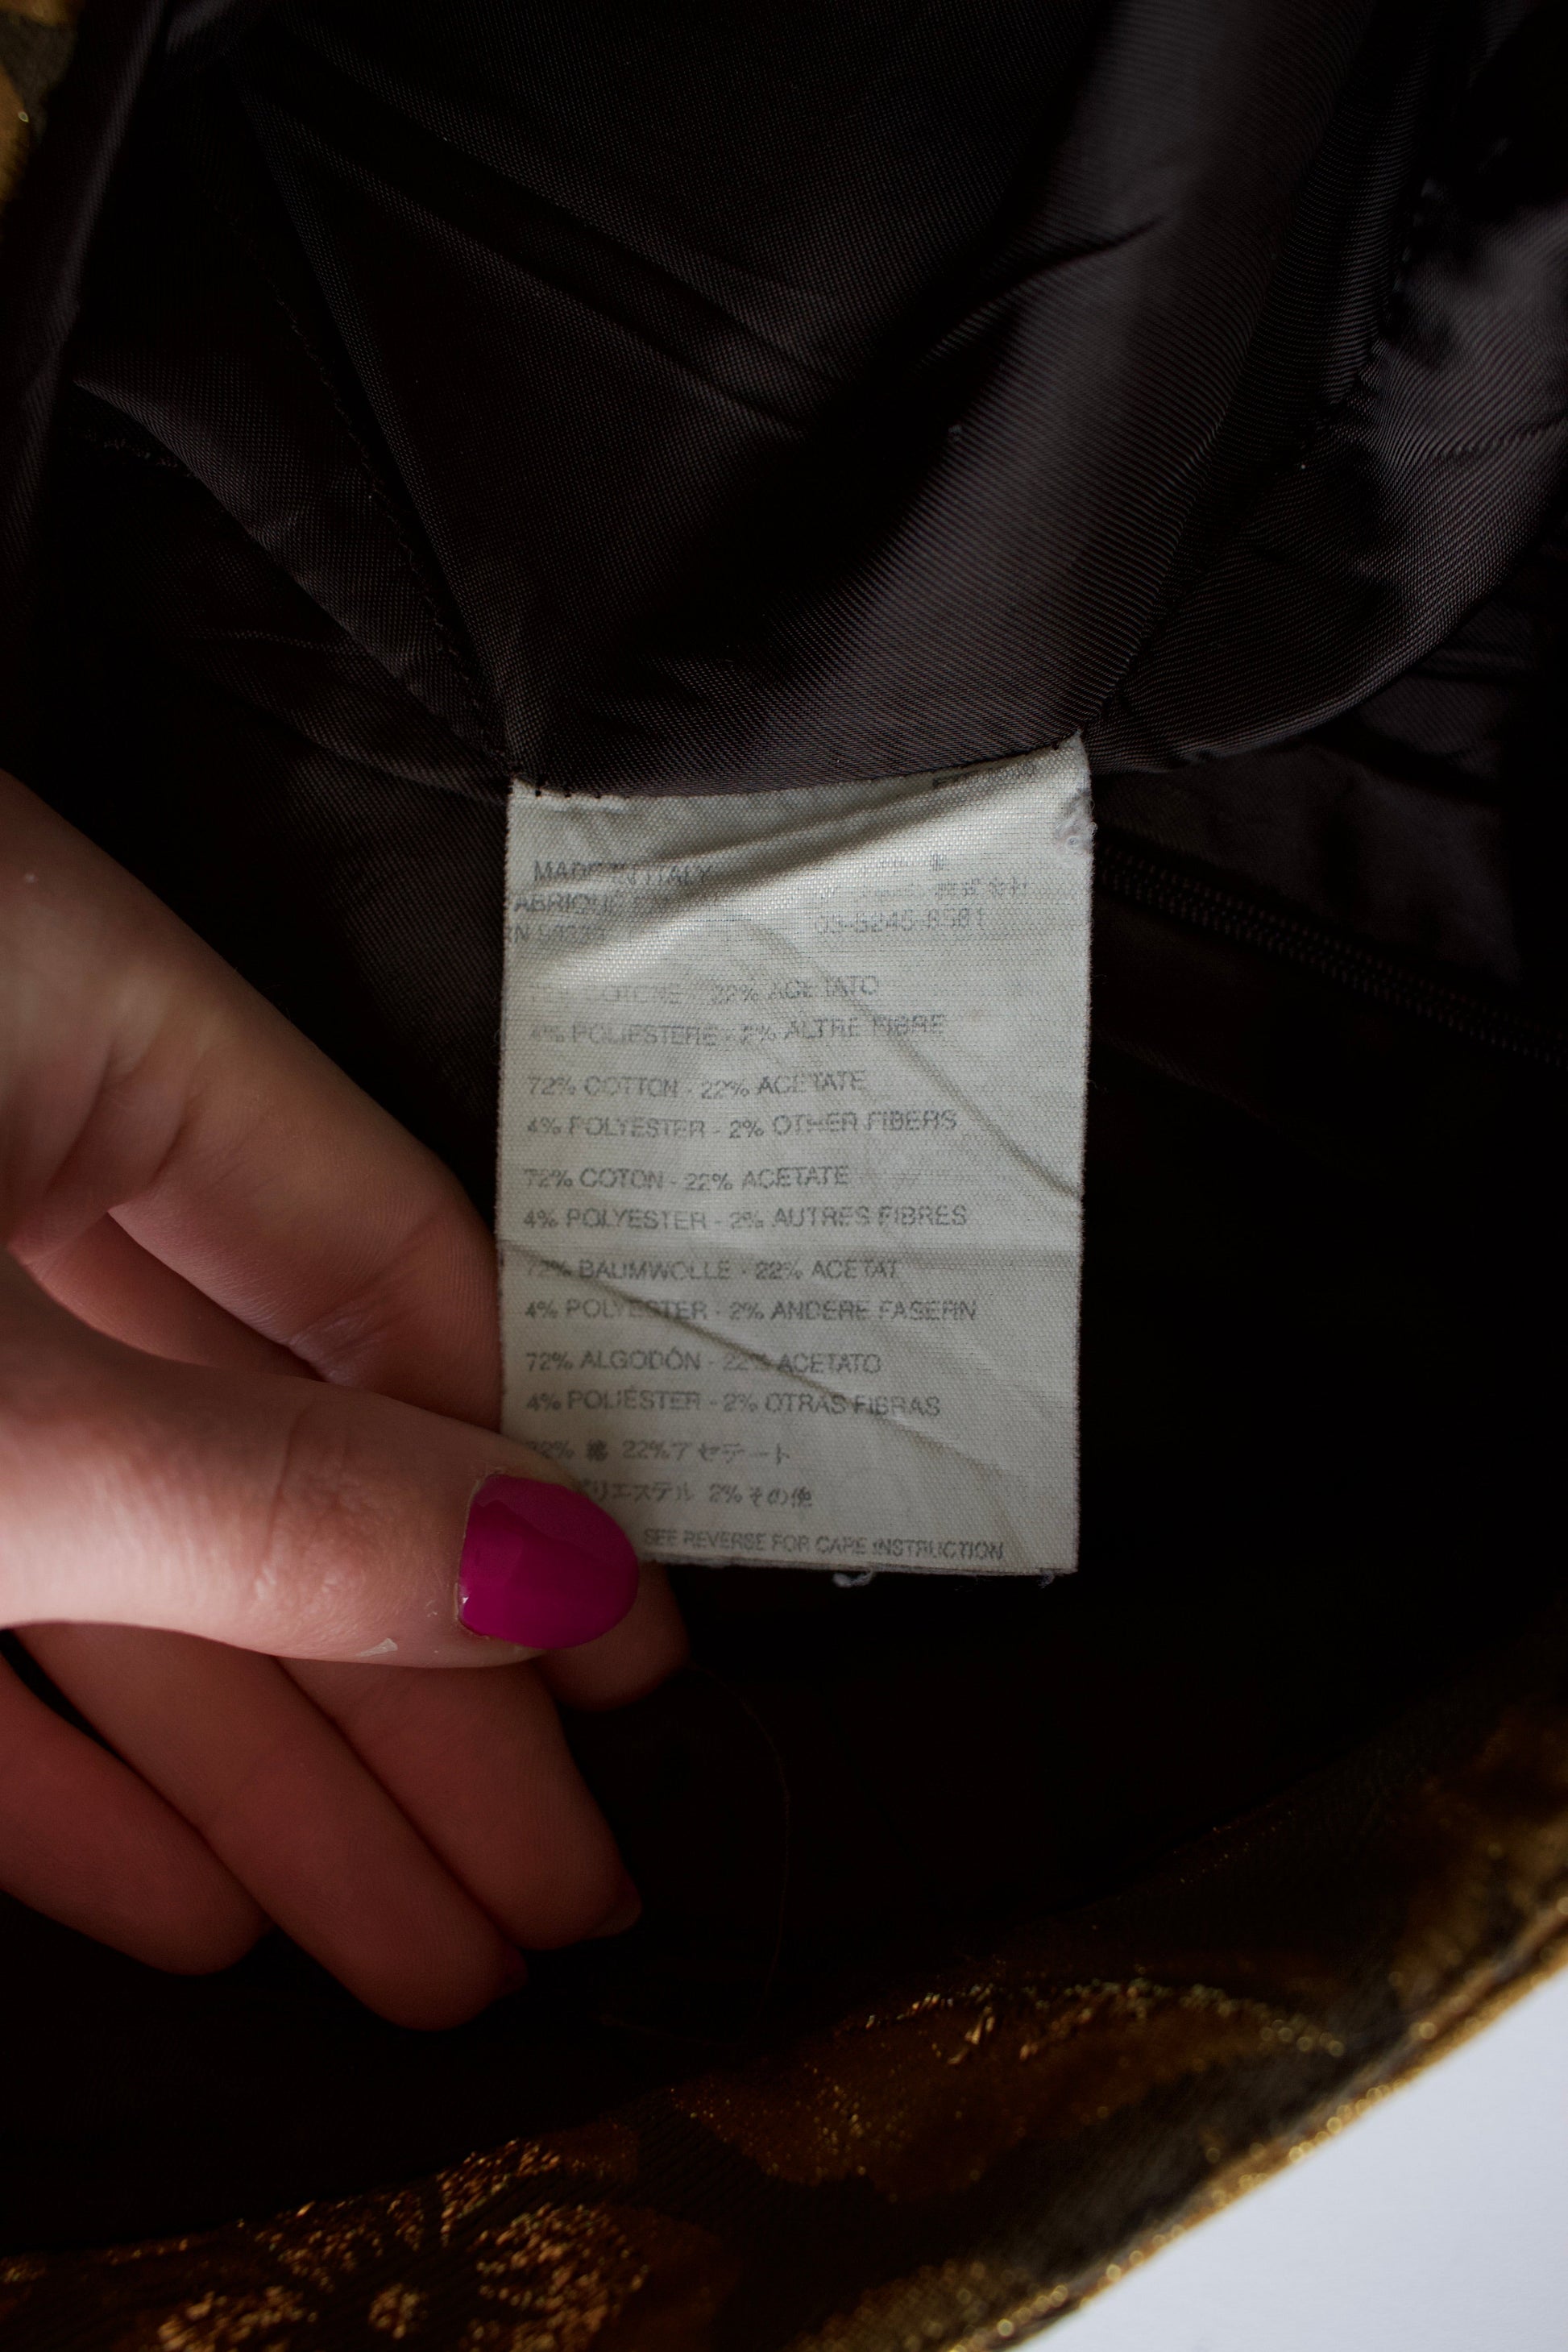 MADE IN ITALY
FABRIQUÉ EN
株式会社
03-5245-8581
72% COTONE - 22% ACETATO
4% POLIESTERE - 2% ALTRE FIBRE
72% COTTON - 22% ACETATE
4% POLYESTER - 2% OTHER FIBERS
72% COTON - 22% ACETATE
4% POLYESTER - 2% AUTRES FIBRES
72% BAUMWOLLE - 22% ACETAT
4% POLYESTER - 2% ANDERE FASERN
72% ALGODÓN - 22% ACETATO
4% POLIÉSTER - 2% OTRAS FIBRAS
72% 綿 22%アセテート
ポリエステル 2%その他
SEE REVERSE FOR CARE INSTRUCTION